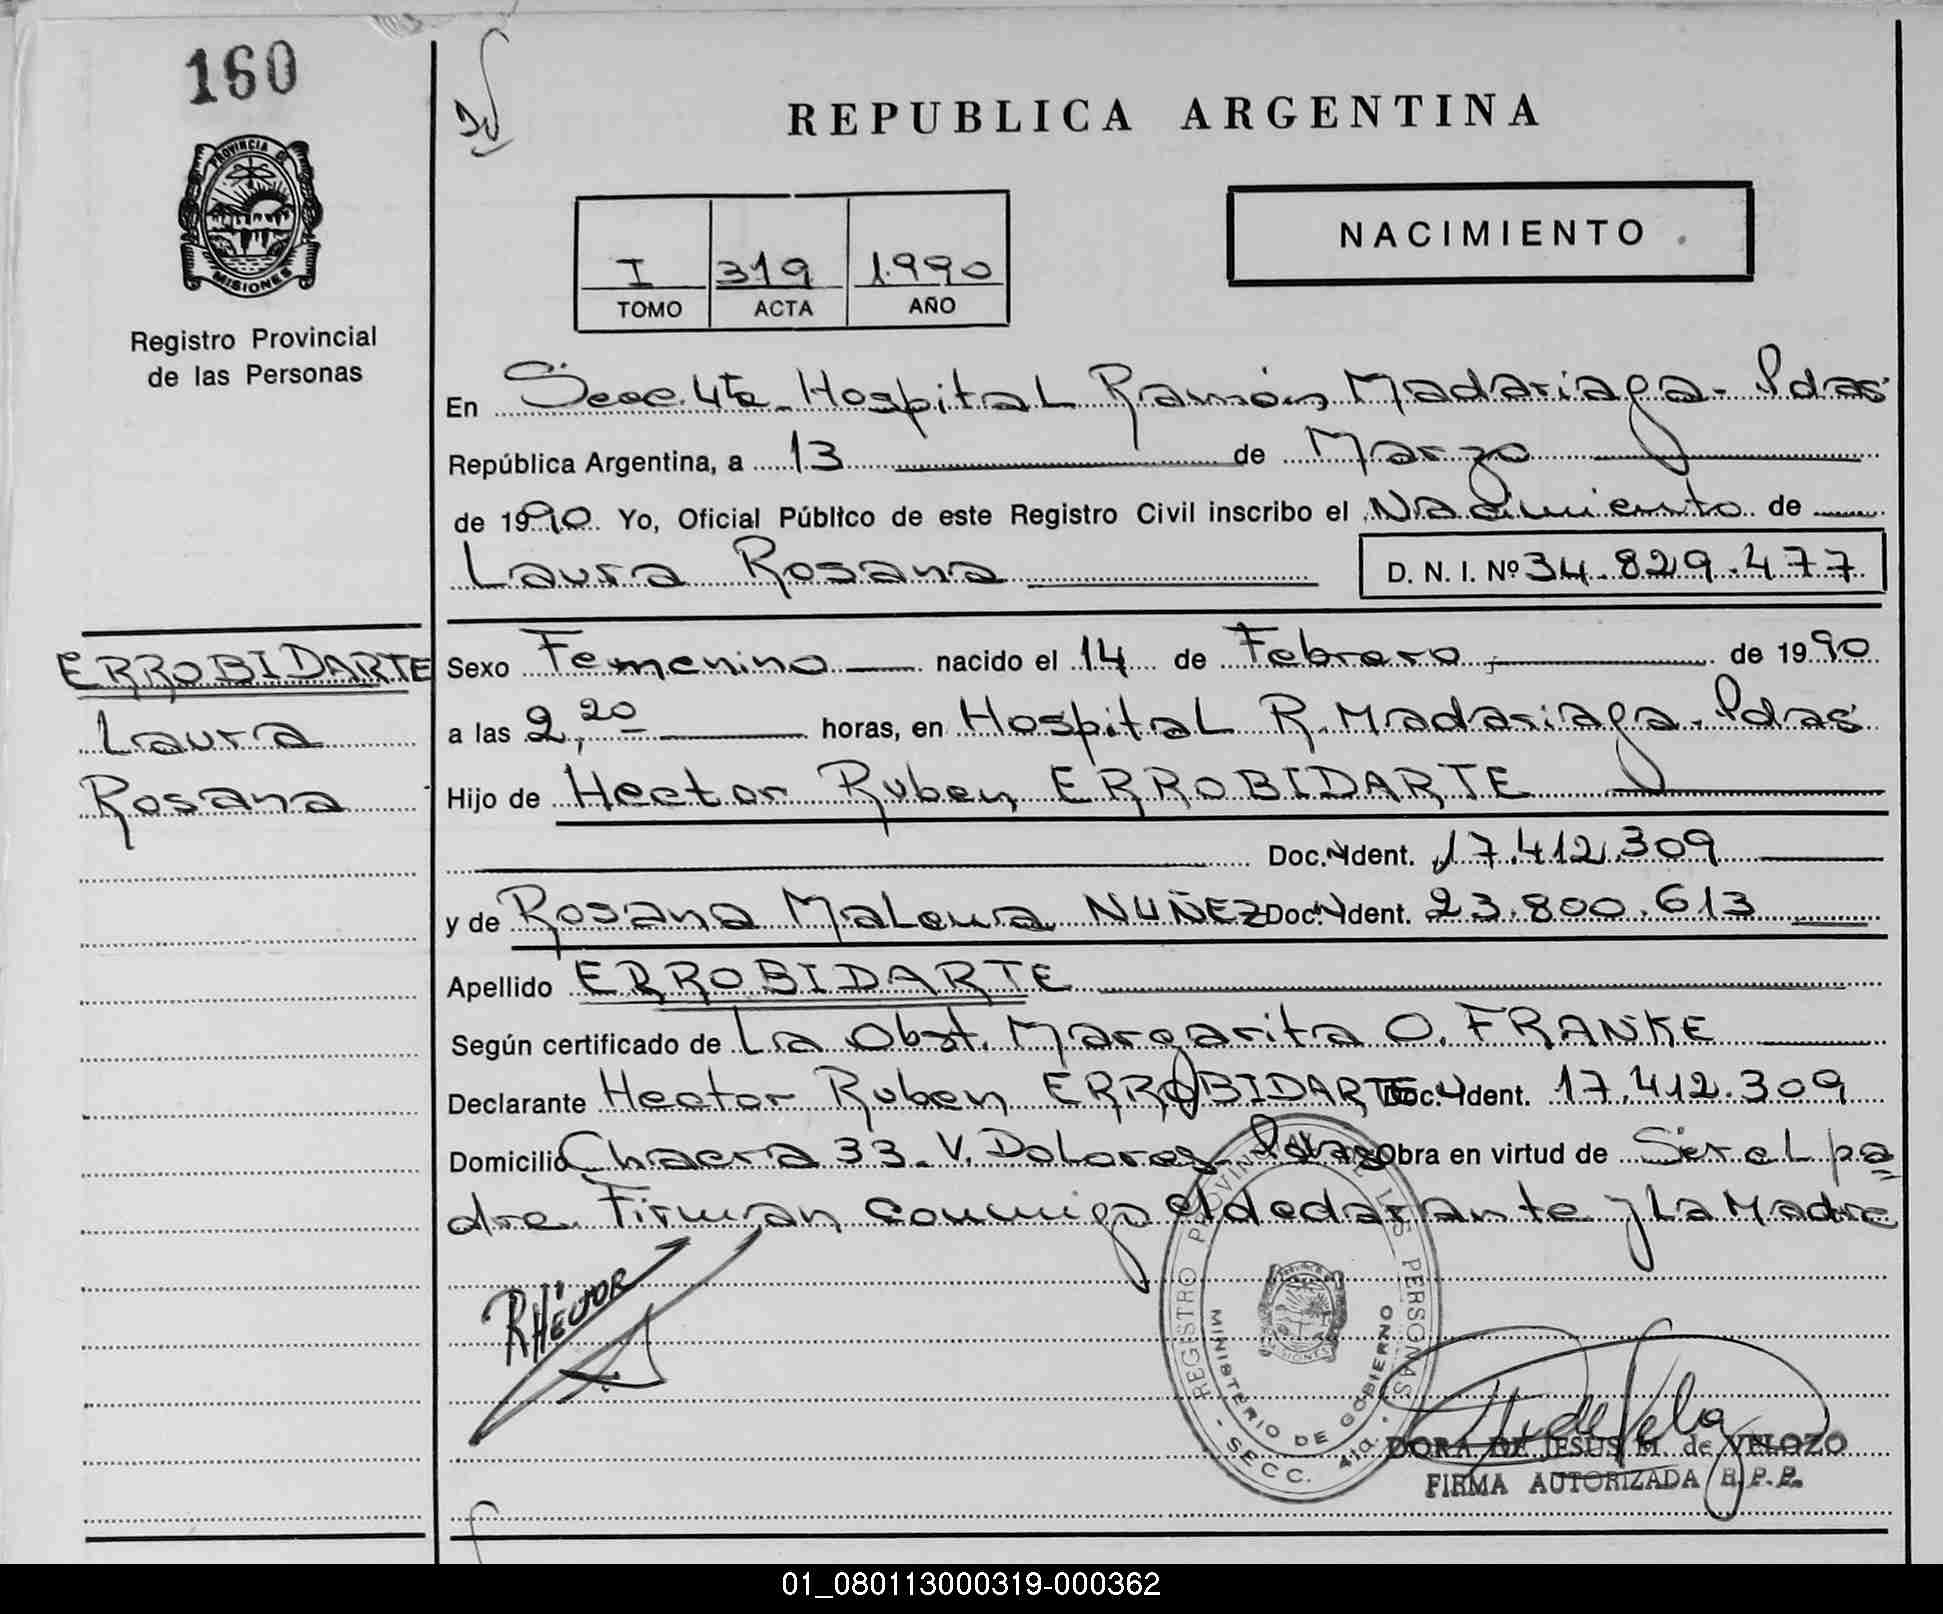 160
PROVINCIA DE
MISIONES
Registro Provincial
de las Personas
REPUBLICA ARGENTINA
I 319 1990
TOMO ACTA AÑO
NACIMIENTO
En Secc. 4ta. Hospital Ramón Madariaga - Pdas
República Argentina, a 13 de Marzo
de 1990 Yo, Oficial Público de este Registro Civil inscribo el Nacimiento de
Laura Rosana D. N. I. Nº 34.829.477
ERROBIDARTE
Laura
Rosana
Sexo Femenino nacido el 14 de Febrero de 1990
a las 2,20 horas, en Hospital R. Madariaga - Pdas
Hijo de Hector Ruben ERROBIDARTE
Doc. N. Ident. 17.412.309
y de Rosana Malena NUÑEZ Doc. N. Ident. 23.800.613
Apellido ERROBIDARTE
Según certificado de La Obst. Margarita O. FRANKE
Declarante Hector Ruben ERROBIDARTE Doc. Ident. 17.412.309
Domicilio Chacra 33. V. Dolores - Pdas Obra en virtud de Ser el pa
dre. Firman conmigo el declarante y La Madre
R HÉCTOR
REGISTRO PROVINCIAL DE LAS PERSONAS
MINISTERIO DE GOBIERNO
MISIONES
- SECC. 4ta. -
DORA DE JESUS M. de VELOZO
FIRMA AUTORIZADA R.P.P.
01_080113000319-000362